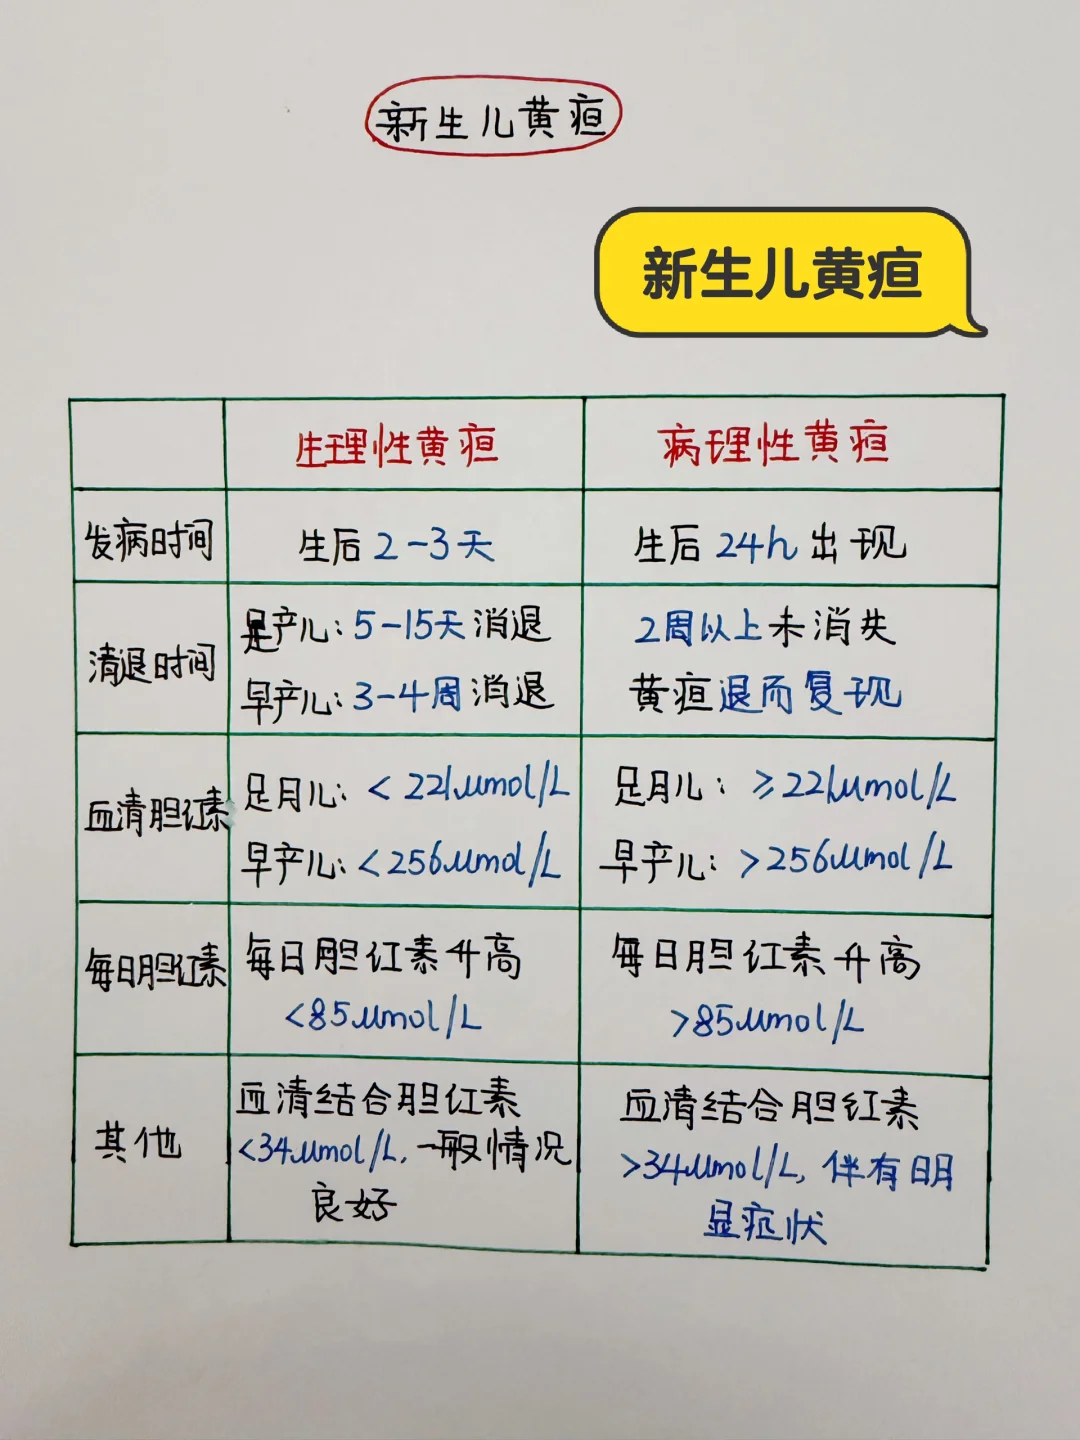 新生儿黄疸
新生儿黄疸
生理性黄疸
病理性黄疸
发病时间
生后2-3天
生后24h出现
清退时间
足产儿:5-15天消退
早产儿:3-4周消退
2周以上未消失
黄疸退而复现
血清胆红素
足月儿:<221μmol/L
早产儿:<256μmol/L
足月儿:≥221μmol/L
早产儿:>256μmol/L
每日胆红素
每日胆红素升高
<85μmol/L
每日胆红素升高
>85μmol/L
其他
血清结合胆红素
<34μmol/L,一般情况
良好
血清结合胆红素
>34μmol/L,伴有明
显症状